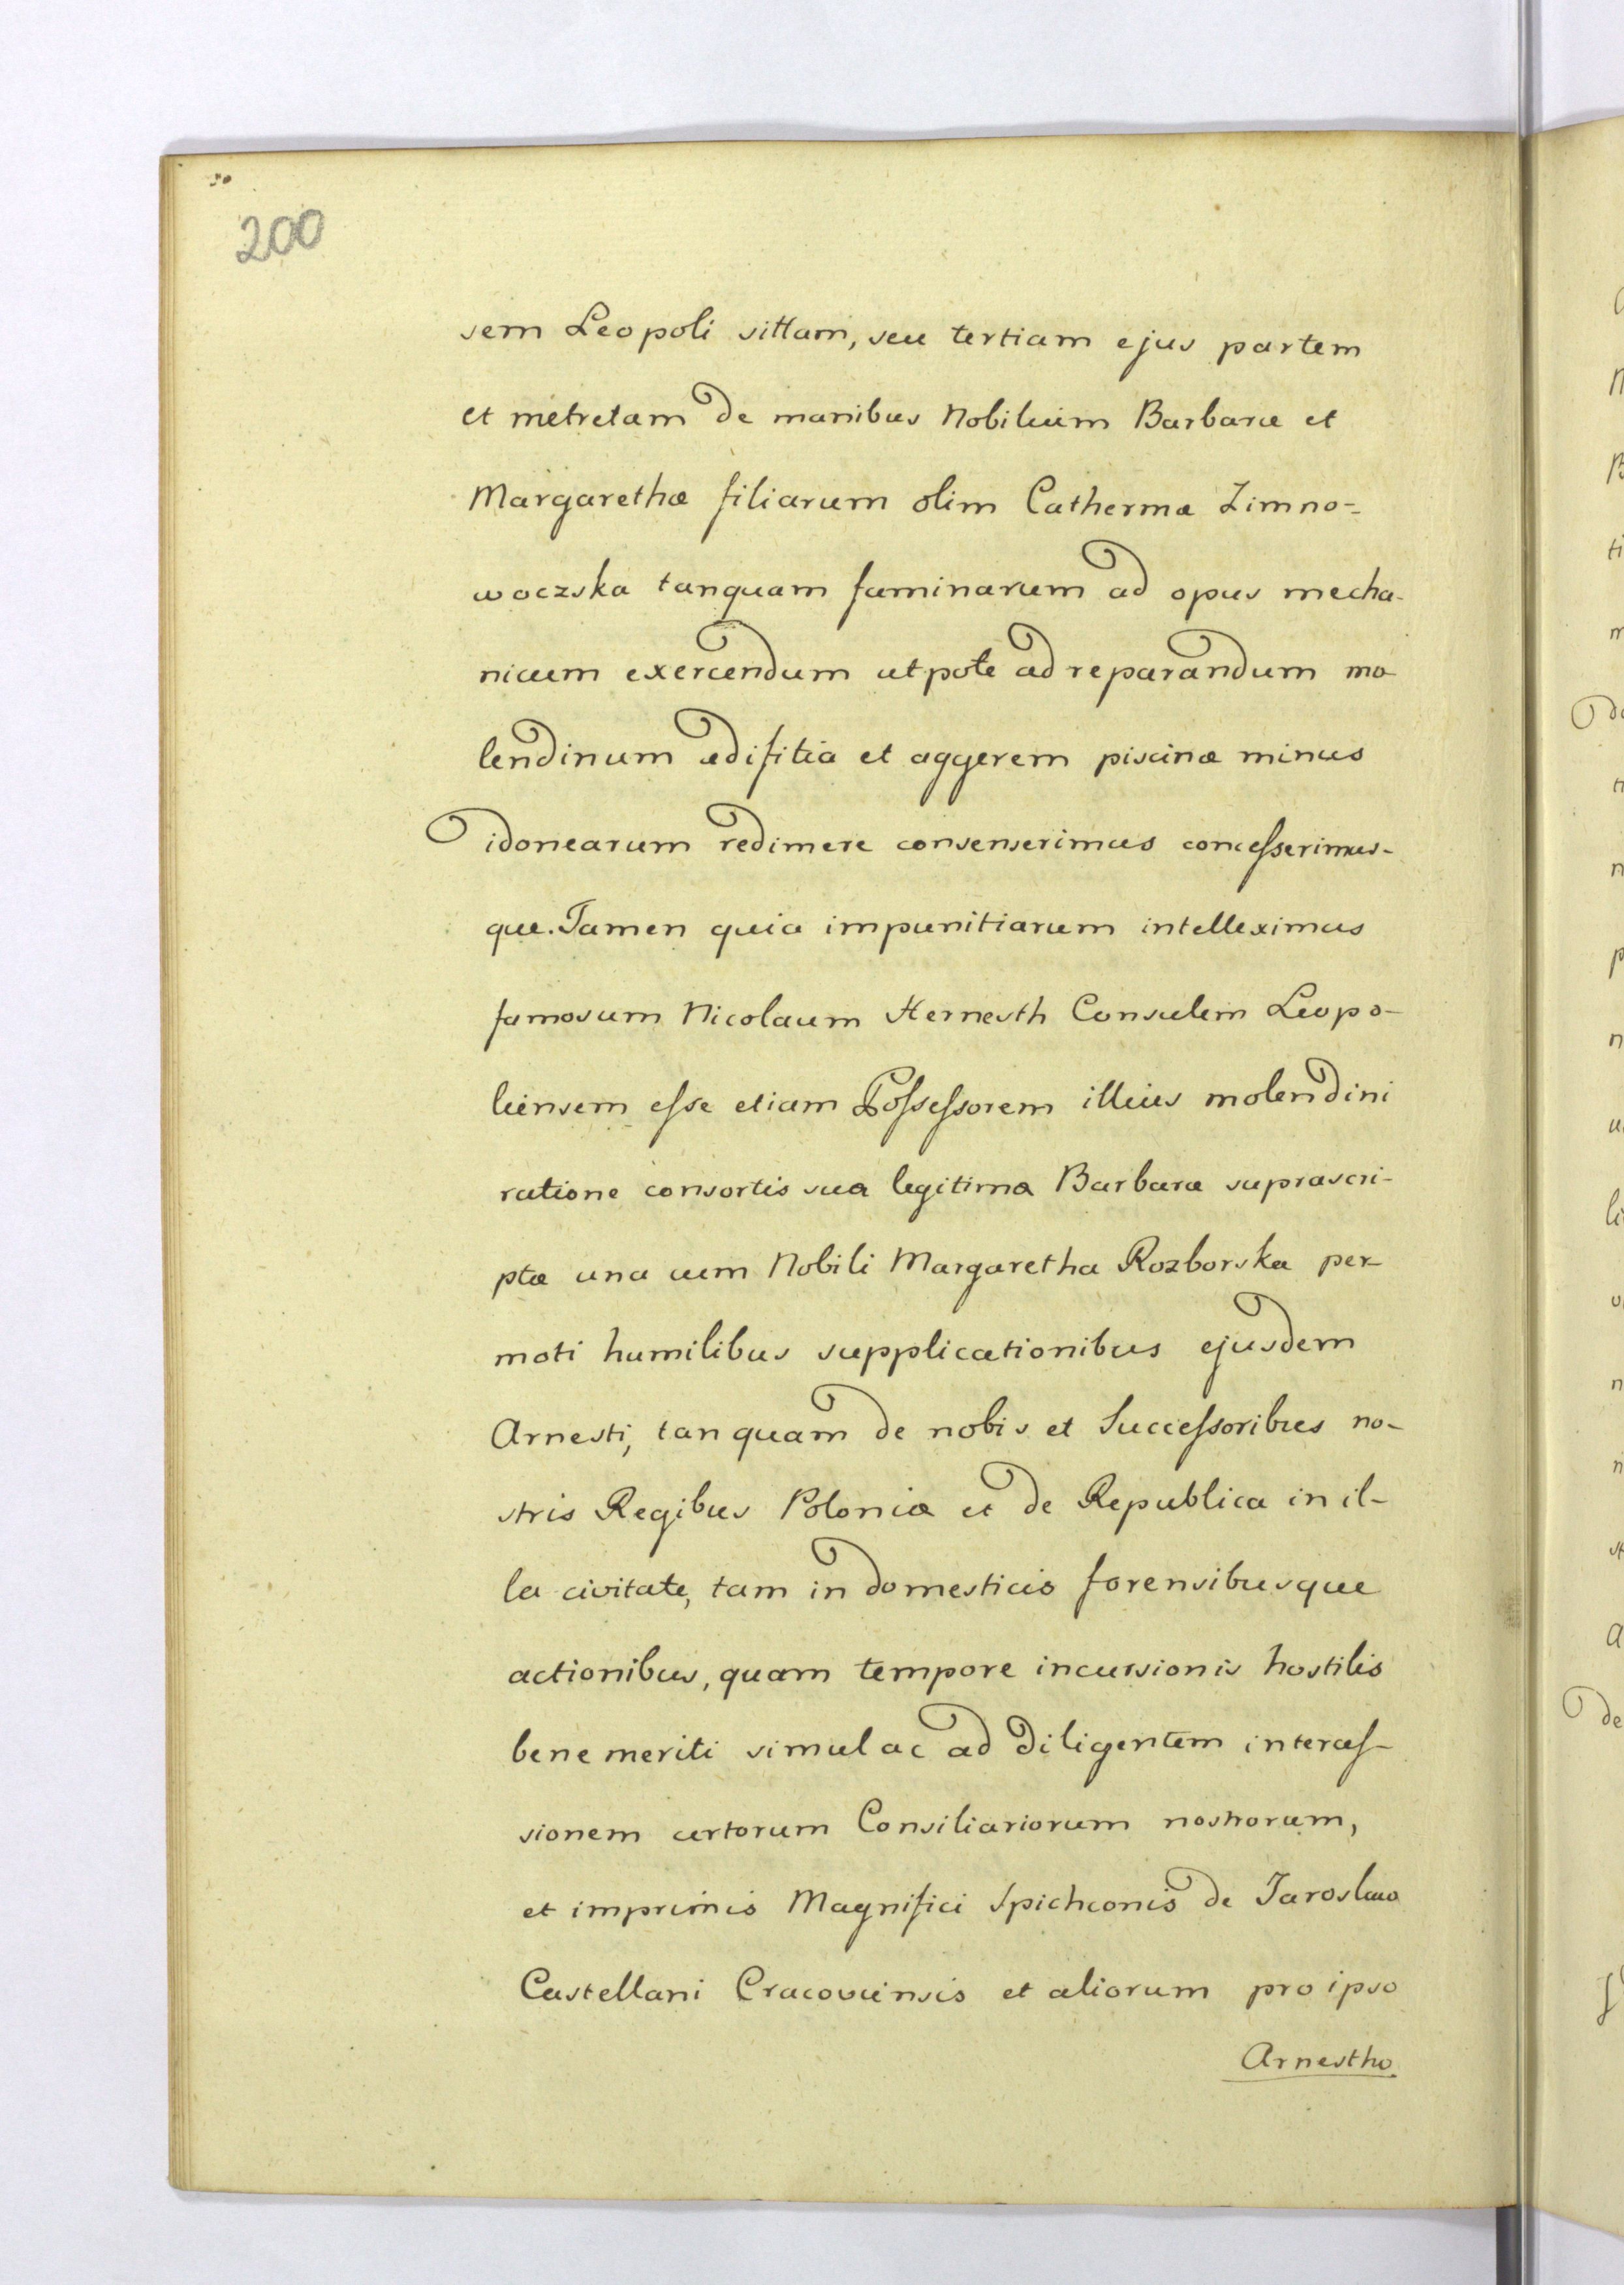 200
sem Leopoli sittam, seu tertiam ejus partem
et metretam de manibus Nobilium Barbaræ et
Margarethæ filiarum olim Catherinæ Zimno-
woczska tanquam fæminarum ad opus mecha-
nicum exercendum utpote ad reparandum mo-
lendinum ædifitia et aggerem piscinæ minus
idonearum redimere consenserimus concesserimus-
que. Tamen quia impunitiarum intelleximus
famosum Nicolaum Hernesth Consulem Leopo-
liensem esse etiam Possessorem illius molendini
ratione consortis suæ legitimæ Barbaræ suprascri-
ptæ una cum Nobili Margaretha Rozborska per-
moti humilibus supplicationibus ejusdem
Arnesti, tanquam de nobis et Successoribus no-
stris Regibus Poloniæ et de Republica in il-
la civitate, tam in domesticis forensibusque
actionibus, quam tempore incursionis hostilis
bene meriti simul ac ad diligentem interces-
sionem certorum Consiliariorum nostrorum,
et imprimis Magnifici Spichconis de Jaroslaw
Castellani Cracoviensis et aliorum pro ipso
Arnestho